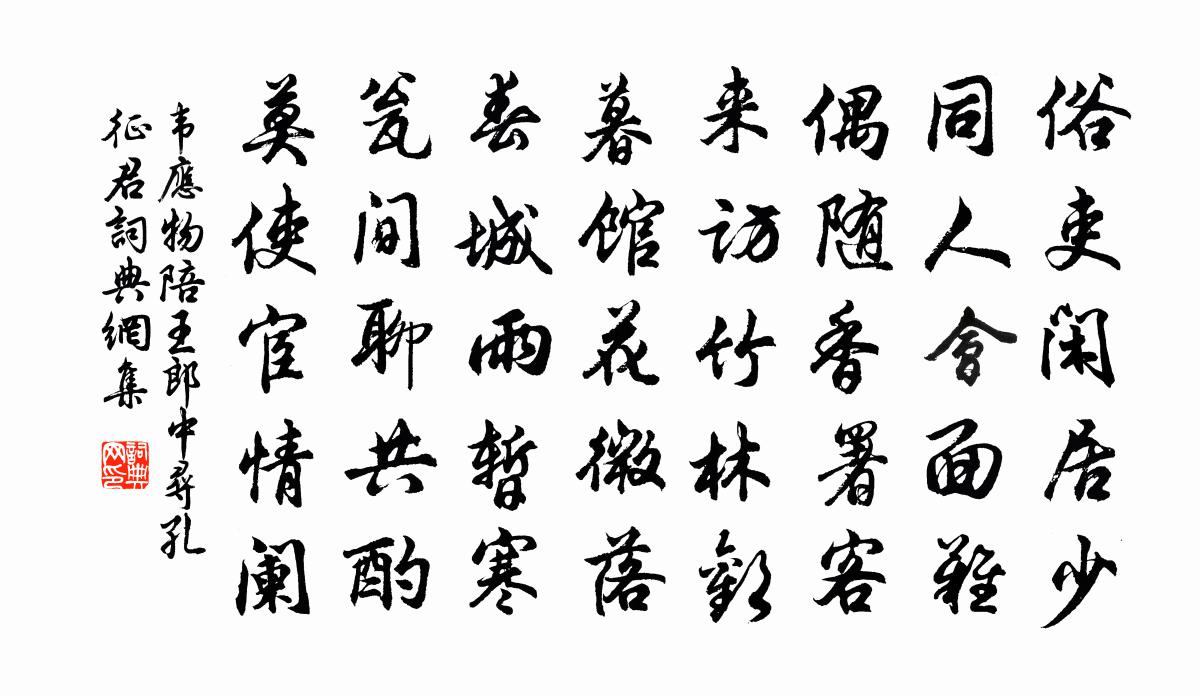 俗吏闲居少
同人會面難
偶随香署客
来访竹林歡
暮馆花微落
春城雨暂寒
瓮间聊共酌
莫使宦情阑
韦應物陪王郎中尋孔
征君詞典網集
詞典
网印